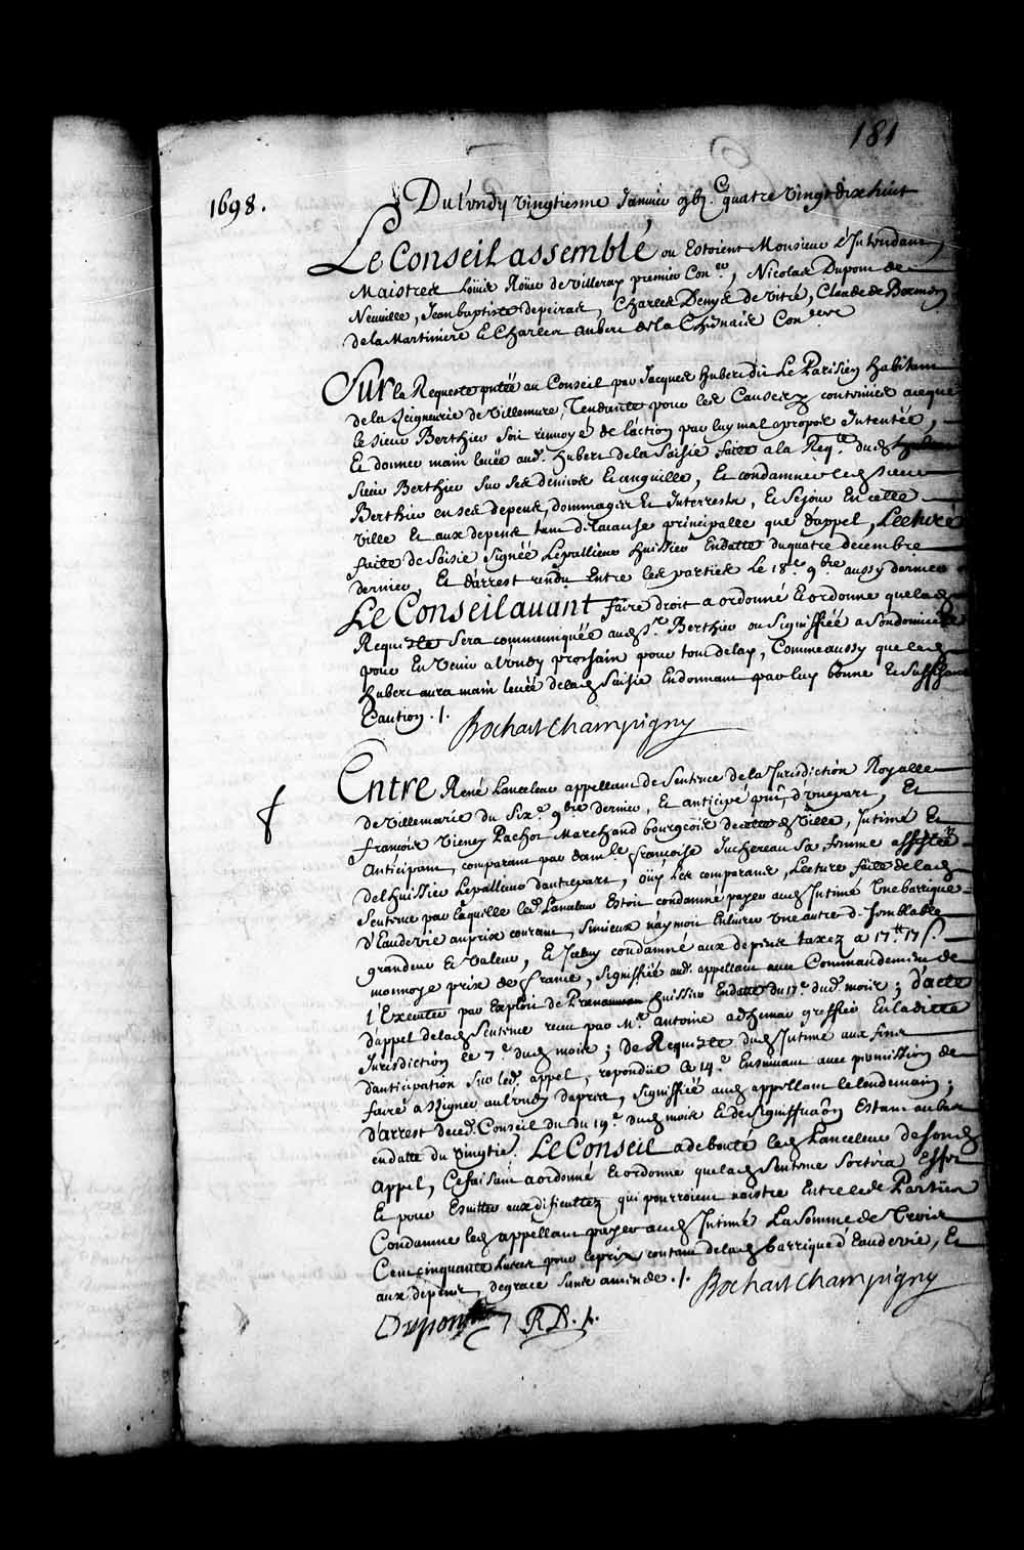 181
1698.
Du Lundy vingtiesme Janvier gbj.C quatre vingt dix huit
Le Conseil assemblé ou Estoient Monsieur L'Intendant,
Maistres Loüis Roüer de Villeray premier Con.er, Nicolas Dupont de
Neuuille, Jean baptiste depeiras, Charles Denys de Vitré, Claude de Bermen
de la Martiniere et Charles aubert de la Chênaie Con.ers
Sur la Requeste pntée au Conseil par Jacques hubert dit Le Parisien habitant
de la seigneurie de Villemure, Tendante pour les Causes y contenües aceque
le sieur Berthier soit renuoyé de l'action par luy mal apropos Intentée,
Et donner main leuée aud. hubert de la Saisie faite a la Req.te dud
Sieur Berthier sur ses Et anguille, Et condamner led Sieur
Berthier en ses depens, dommages Et Interrests, Et Sejour En cette
Ville Et aux depens tant de la cause principalle que d'appel, Lecture
faite de Saisie signée Lepallieur huissier En datte du quatre decembre
dernier, Et d'arrest rendu Entre les parties Le 18.e 9.bre aussy dernier
Le Conseil auant faire droit a ordonné Et ordonne que lad
Requeste Sera communiquée aud s.r Berthier ou Signiffiée a Son domicile
pour En Venir a Lundy prochain pour tout delay, Comme aussy que led
hubert aura main leuée de lad Saisie En donnant par luy bonne Et Suffisante
Caution ./.
Bochart Champigny
Entre René Lanceleur appellant de Sentence de la Jurisdiction Royalle
de Villemarie du Six.e 9.bre dernier, Et anticipé d'une part, Et
françois Vienay Pachot Marchand bourgeois de Ville, Intimé Et
Anticipant, comparant par dam.lle françoise Juchereau Sa femme assistée
de l'huissier Lepallieur d'autre part, Oüy Les comparans, Lecture faite de lad
Sentence par laquelle led Lanceleur Estoit condamné payer aud Intimé Une barique
d'Eau de vie au prix courant, Sinieux n'aymoit En liurer Vne autre de Semblable
grandeur Et Valeur, Et Iceluy condamné aux depens taxez a 17.tt 17 s.
monnoye prix de france, Signiffiée aud. appellant auec Commandement de
l'Executer par Exploit de huissier En datte du 17.e dud. mois; d'acte
d'appel de lad Sentence receu par M.e Antoine adhemar greffier En ladite
Jurisdiction le 7.e dud mois; de Requeste dud Intimé aux fins
d'anticipation Sur led. appel, repondüe Le 14.e Ensuiuant auec permission de
faire assigner au lundy d'apres, Signiffiée aud appellant le lendemain;
d'arrest deced. Conseil du du 19.e dud mois Et de Signiffica'on Estant au bas
en datte du Vingtie. Le Conseil a deboute led Lanceleur de sond
appel, Ce faisant a ordonné Et ordonne que lad Sentence Sortira Effet
Et pour Esuitter aux dificultez qui pourroient naistre Entre les Parties
Condamne led appellant payer aud Intimé La Somme de Trois
Cent cinquante Liures pour le prix contant de lad barrique d'Eau de vie, Et
aux depens, de grace Sans amende ./. Bochart Champigny
Dupont R D. ./.